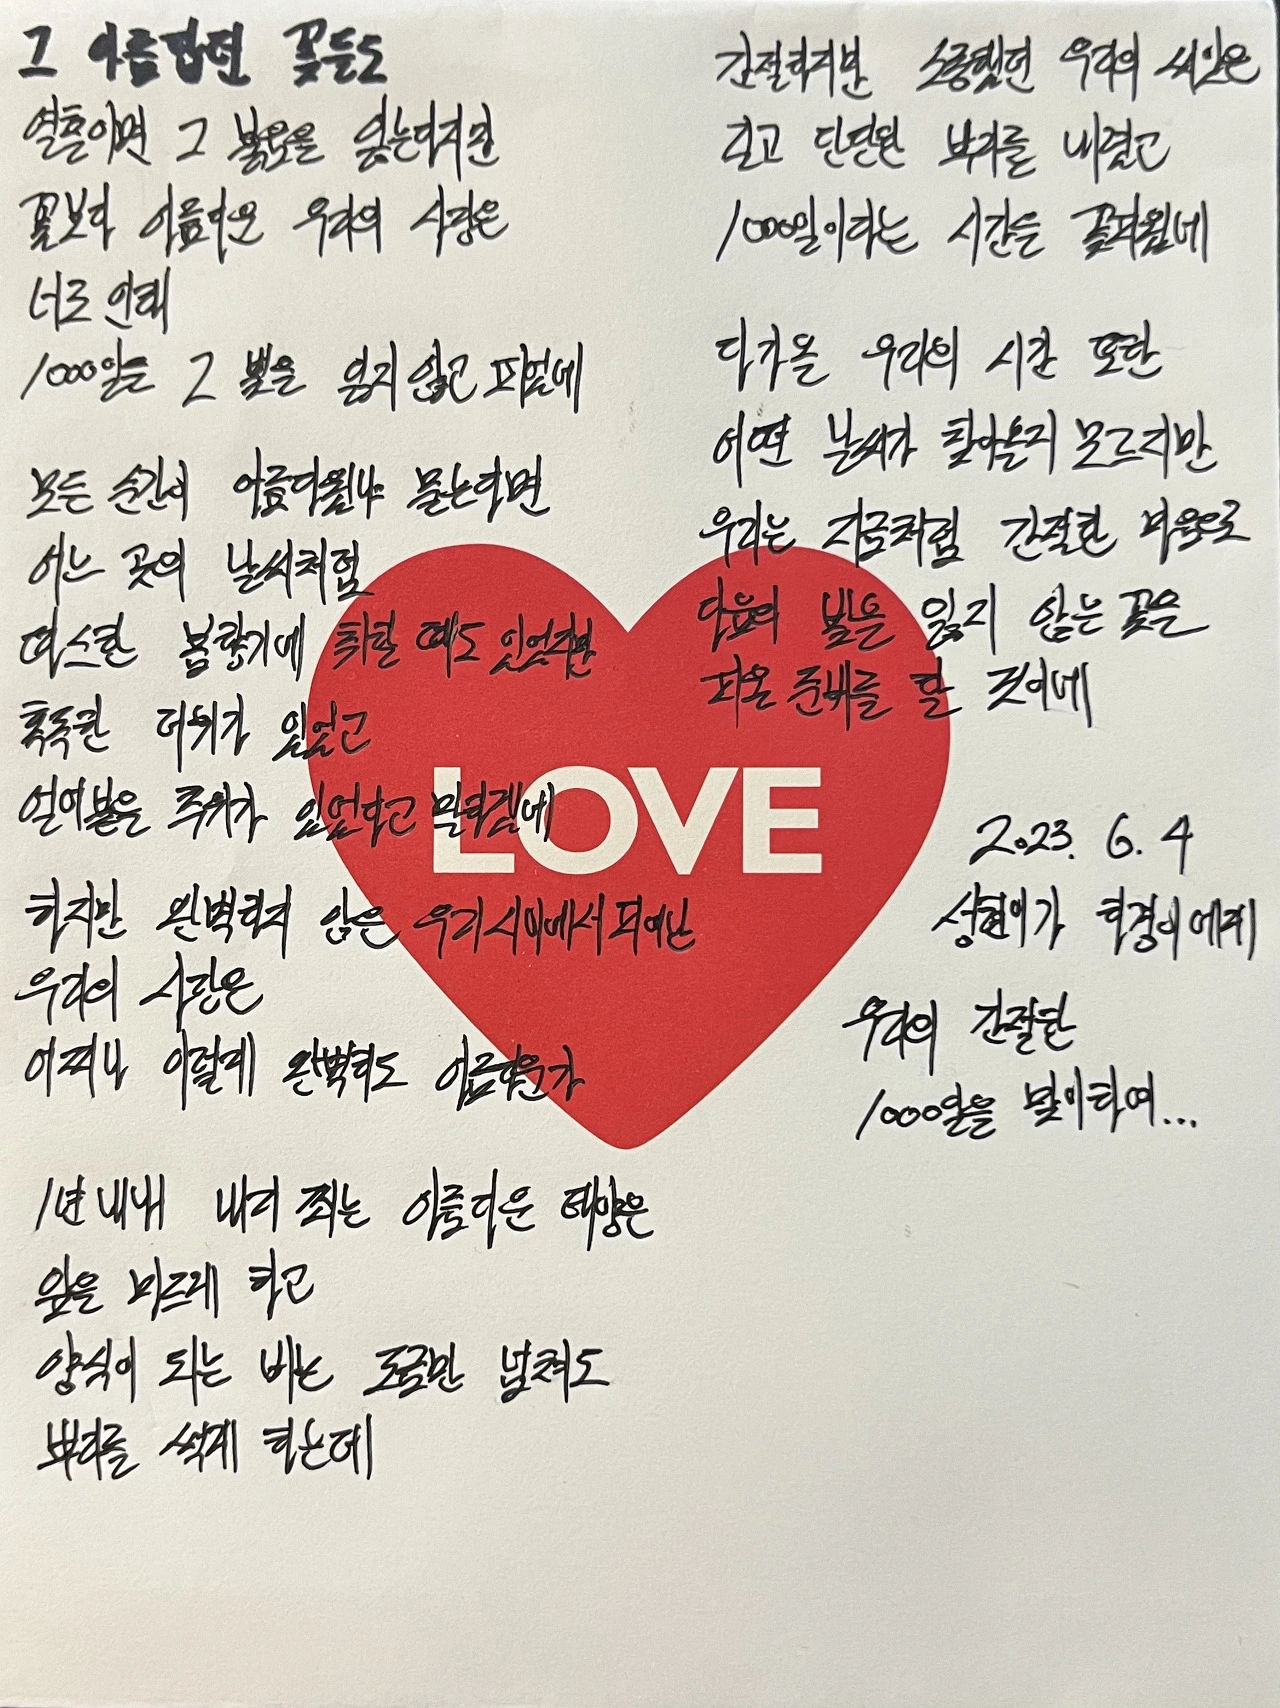 그 아름답던 꽃들도
열흘이면 그 붉음을 잃는다지만
꽃보다 아름다운 우리의 사랑은
너로 인해
1000일을 그 빛을 잃지 않고 피었네
모든 순간이 아름다웠냐 묻는다면
어느 곳의 날씨처럼
따스한 봄향기에 취할 때도 있었지만
혹독한 더위가 있었고
얼어붙은 추위가 있었다고 말하겠네
하지만 완벽하지 않은 우리 사이에서 피어난
우리의 사랑은
어찌나 이렇게 완벽히도 아름다운가
1년 내내 내리 쬐는 아름다운 태양은
잎을 마르게 하고
양식이 되는 비는 조금만 넘쳐도
뿌리를 썩게 하는데
간절하지만 소중했던 우리의 씨앗은
길고 단단한 뿌리를 내렸고
1000일이라는 시간을 꽃피웠네
다가올 우리의 시간 또한
어떤 날씨가 찾아올지 모르지만
우리는 지금처럼 간절한 마음으로
다음의 빛을 잃지 않는 꽃을
피울 준비를 할 것이네
LOVE
2023. 6. 4
상현이가 하경이에게
우리의 간절한
1000일을 맞이하여...